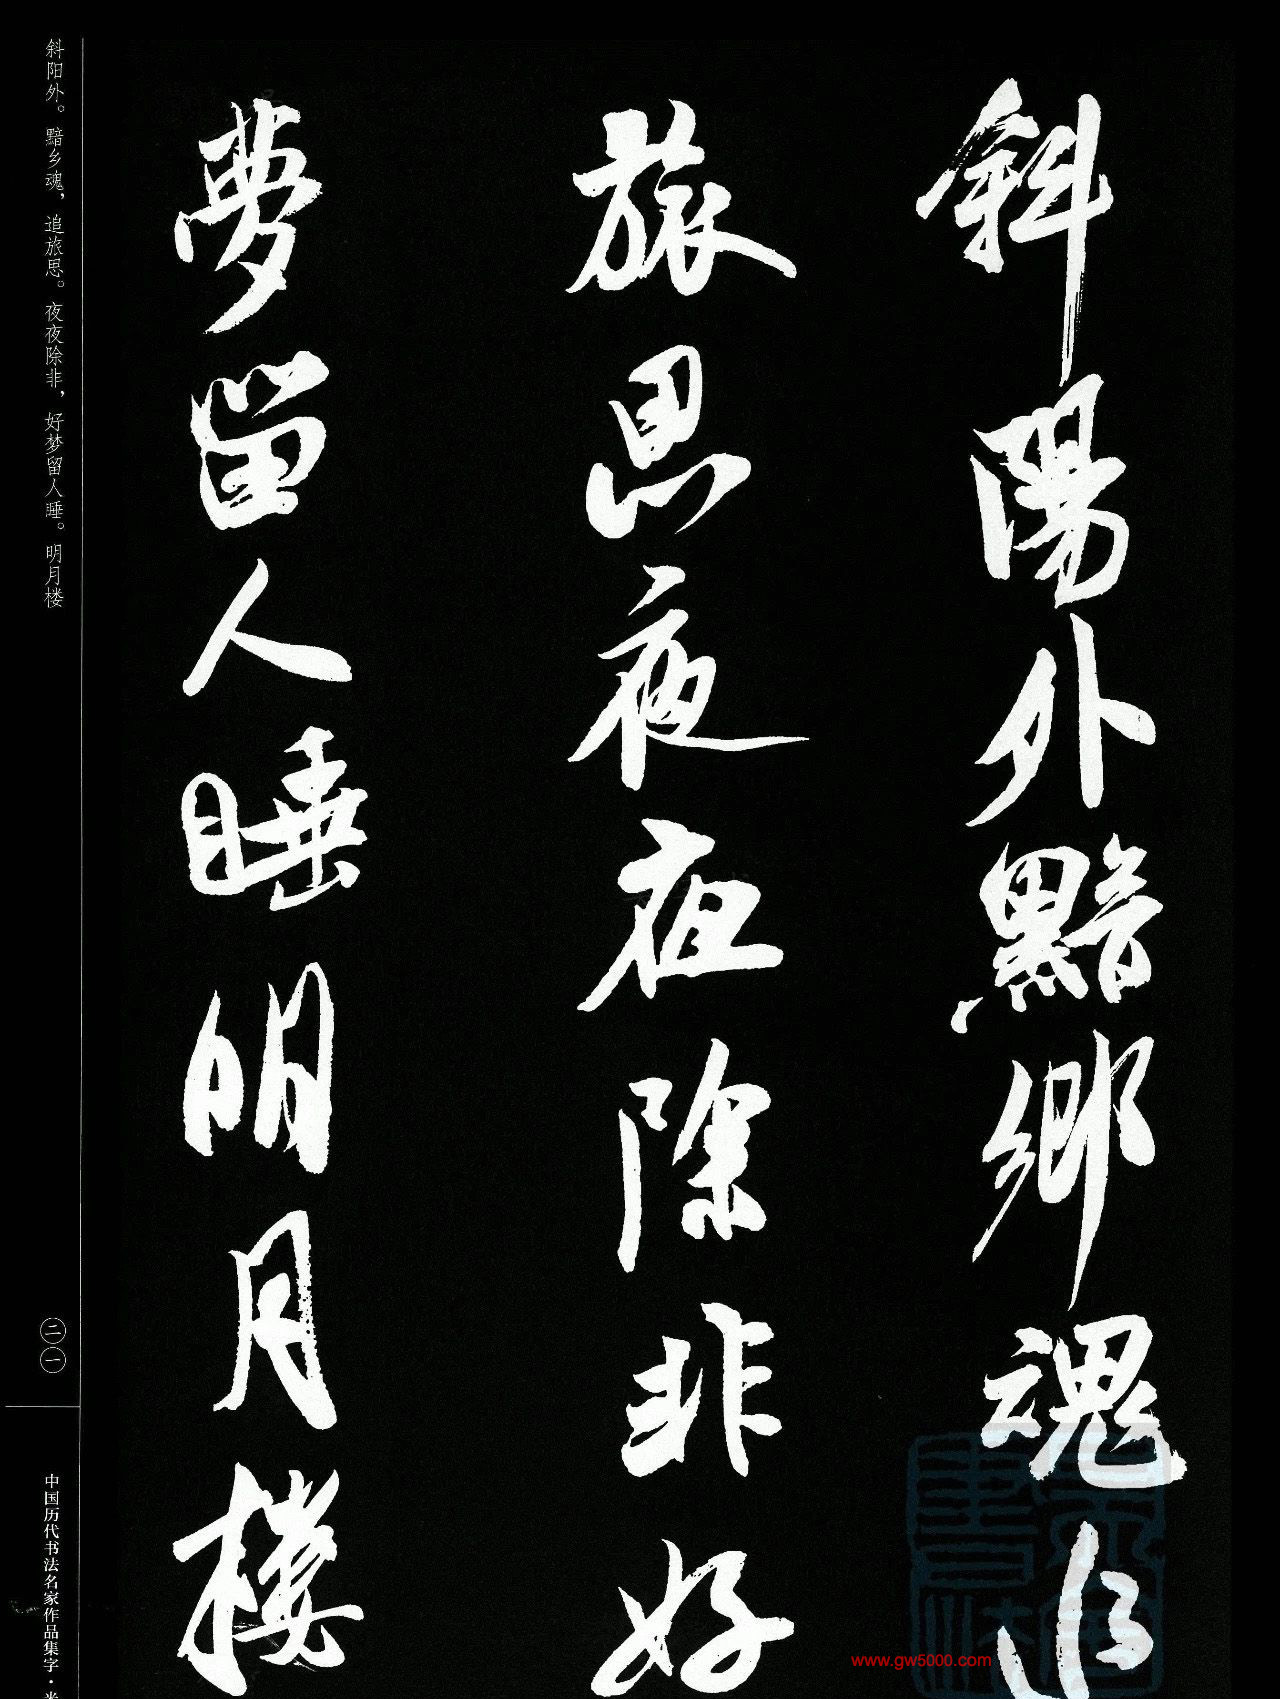 斜陽外黯鄉魂追
旅思夜夜除非好
夢留人睡明月楼
斜阳外。黯乡魂，追旅思。夜夜除非，好梦留人睡。明月楼
二一
中国历代书法名家作品集字·米
www.gw5000.com